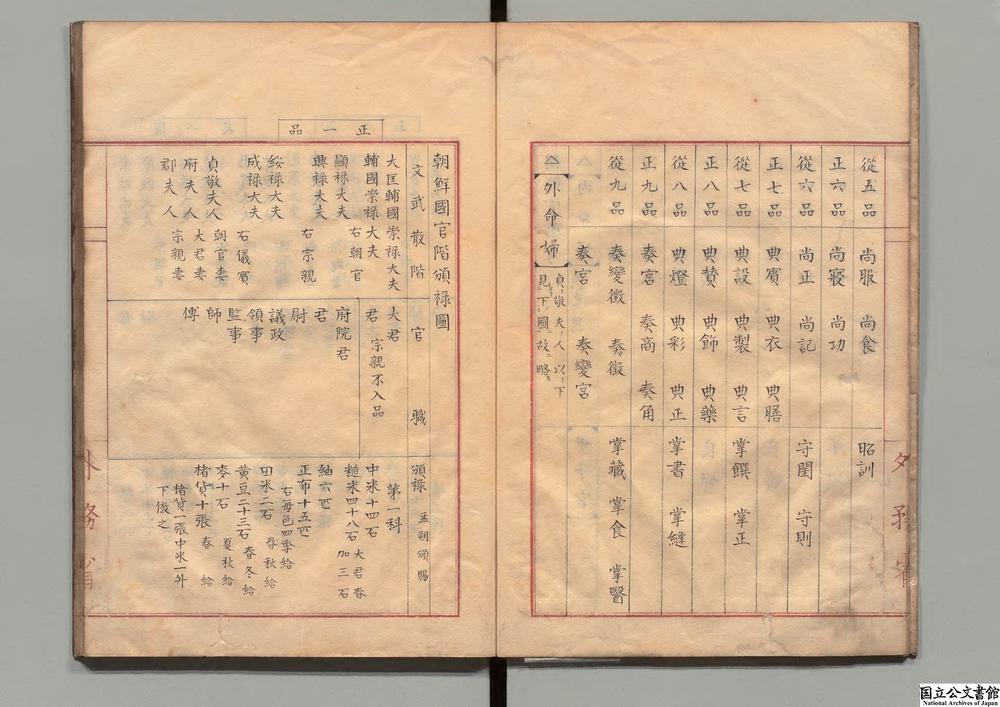 從五品 尚服 尚食 昭訓
正六品 尚寢 尚功
從六品 尚正 尚記 守閨 守則
正七品 典賓 典衣 典膳
從七品 典設 典製 典言 掌饌 掌正
正八品 典賛 典飾 典藥
從八品 典燈 典彩 典正 掌書 掌縫
正九品 奏宮 奏商 奏角
從九品 奏變徵 奏徵 掌藏 掌食 掌醫
奏宮 奏變宮
△【外命婦】貞敬夫人以下
見下圖故略
外務省
正一品
朝鮮國官階頒禄圖
文武散階 官職 頒禄 孟朔頒賜
大匡輔國崇禄大夫 大君 第一科
輔國崇禄大夫 右朝官 君 宗親不入品 中米十四石
顯禄大夫 府院君 糙米四十八石 大君春加三石
興禄大夫 右宗親 君 紬六匹
尉 正布十五匹
右每色四季給
綏禄大夫 議政 田米二石 春秋給
成禄大夫 右儀賓 領事 黄豆二十三石 春冬給
監事 麥十石 夏秋給
貞敬夫人 朝官妻 師 楮貨十張 春給
府夫人 大君妻 傅 楮貨一張中米一升
郡夫人 宗親妻 下倣之
外務省
国立公文書館
National Archives of Japan